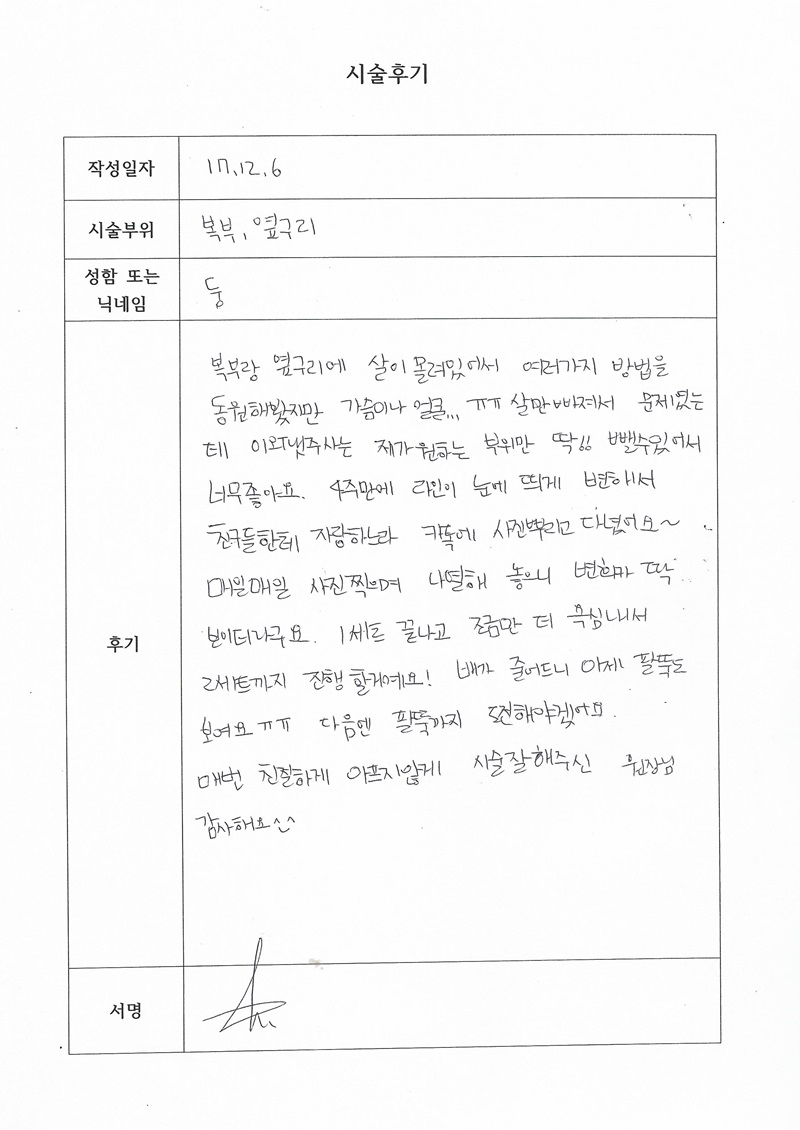 시술후기
작성일자 17.12.6
시술부위 복부, 옆구리
성함 또는
닉네임
둥
후기
복부랑 옆구리에 살이 몰려있어서 여러가지 방법을
동원해봤지만 가슴이나 얼굴... ㅠㅠ 살만 빠져서 문제였는
데 주사는 제가원하는 부위만 딱!! 뺄수있어서
너무좋아요. 4주만에 라인이 눈에 띄게 변해서
친구들한테 자랑하느라 카톡에 사진뿌리고 다녔어요~
매일매일 사진찍으며 나열해 놓으니 변화가 딱
보이더라구요. 1세트 끝나고 조금만 더 욕심내서
2세트까지 진행 할거예요! 배가 줄어드니 이제 팔뚝도
보여요ㅠㅠ 다음엔 팔뚝까지 도전해야겠어요.
매번 친절하게 아프지않게 시술잘해주신 원장님
감사해요^^
서명